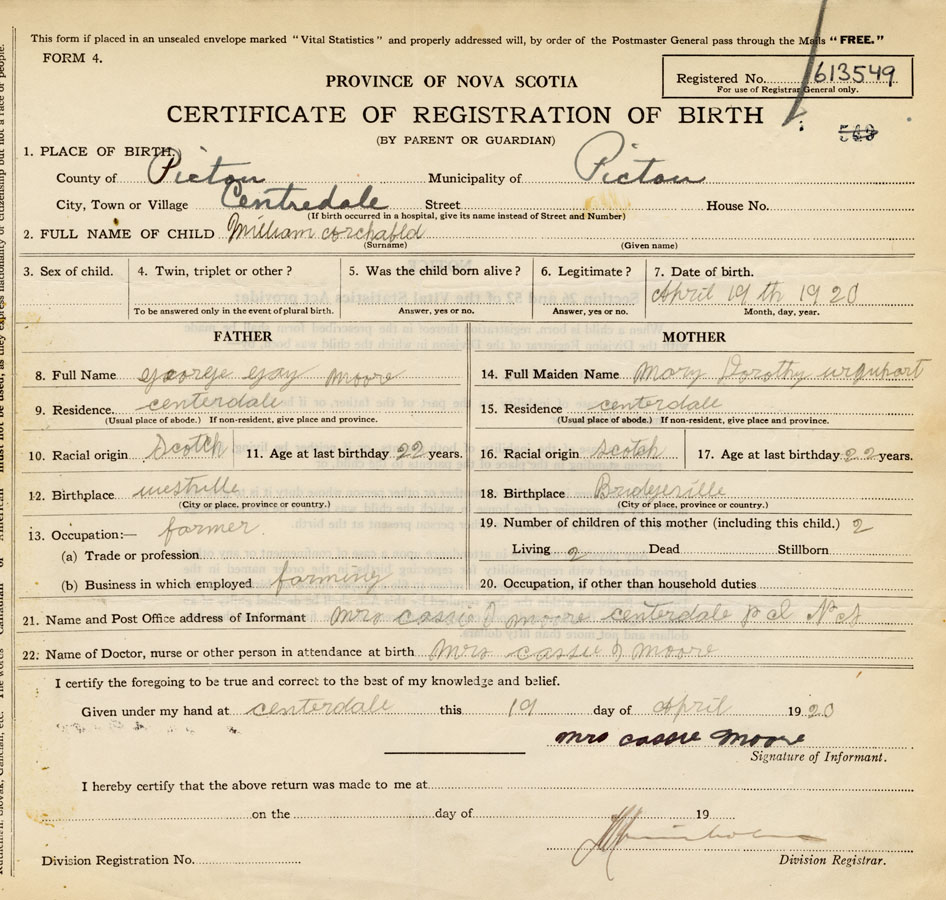 This form if placed in an unsealed envelope marked "Vital Statistics" and properly addressed will, by order of the Postmaster General pass through the Mails "FREE."
FORM 4.
PROVINCE OF NOVA SCOTIA
Registered No. 613549
For use of Registrar General only.
CERTIFICATE OF REGISTRATION OF BIRTH
(BY PARENT OR GUARDIAN)
1. PLACE OF BIRTH
County of Pictou Municipality of Pictou
City, Town or Village Centredale Street House No.
(If birth occurred in a hospital, give its name instead of Street and Number)
2. FULL NAME OF CHILD William archabld
(Surname) (Given name)
3. Sex of child. 4. Twin, triplet or other? 5. Was the child born alive? 6. Legitimate? 7. Date of birth.
April 19 th 1920
To be answered only in the event of plural birth. Answer, yes or no. Answer, yes or no. Month, day, year.
FATHER
8. Full Name george gay moore
9. Residence. centerdale
(Usual place of abode.) If non-resident, give place and province.
10. Racial origin Scotch 11. Age at last birthday 22 years.
12. Birthplace westville
(City or place, province or country.)
13. Occupation:— farmer
(a) Trade or profession
(b) Business in which employed farming
MOTHER
14. Full Maiden Name Mary Dorothy urquhart
15. Residence centerdale
(Usual place of abode.) If non-resident, give place and province.
16. Racial origin scotch 17. Age at last birthday 22 years.
18. Birthplace Bridgeville
(City or place, province or country.)
19. Number of children of this mother (including this child.) 2
Living 2 Dead Stillborn
20. Occupation, if other than household duties
21. Name and Post Office address of Informant mrs cassie J moore centerdale
22. Name of Doctor, nurse or other person in attendance at birth Mrs cassie J moore
I certify the foregoing to be true and correct to the best of my knowledge and belief.
Given under my hand at centerdale this 19 day of April 1920
mrs cassie moore
Signature of Informant.
I hereby certify that the above return was made to me at
on the day of 19
Division Registration No. Division Registrar.